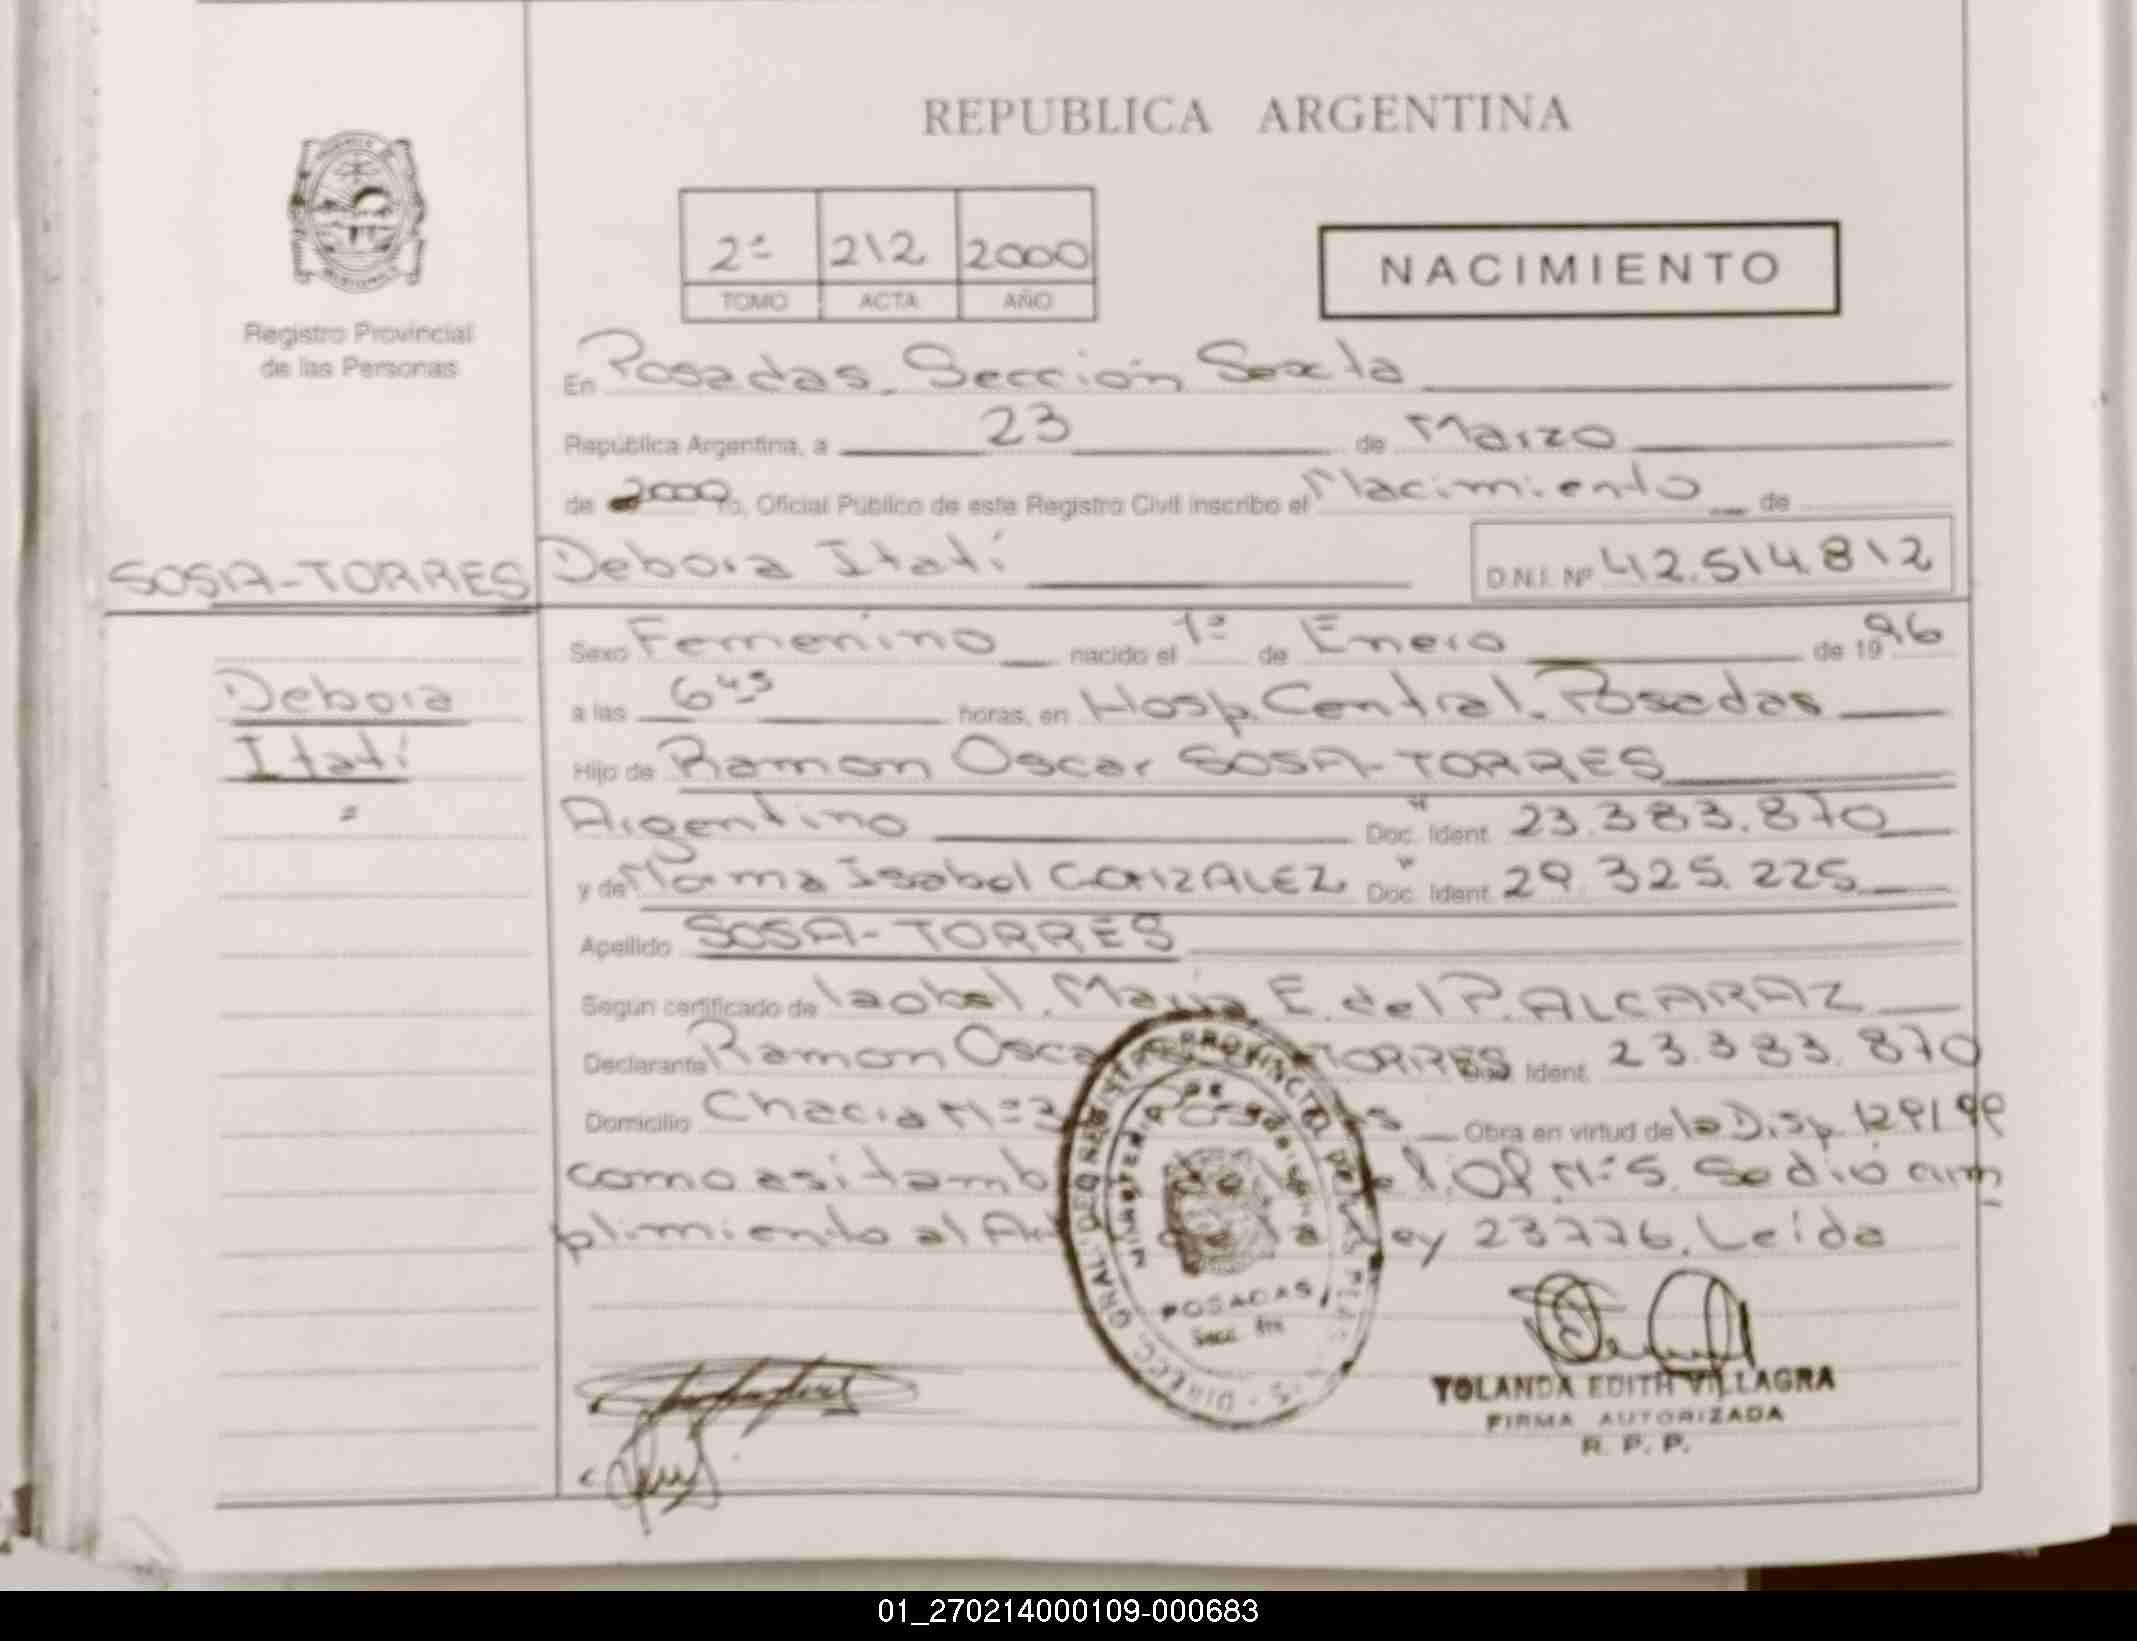 REPUBLICA ARGENTINA
2ª 212 2000
TOMO ACTA AÑO
NACIMIENTO
Registro Provincial
de las Personas
En Posadas, Sección Sexta
República Argentina, a 23 de Marzo
de 2000 Yo, Oficial Público de este Registro Civil inscribo el Nacimiento de
SOSA-TORRES Debora Itatí D.N.I. Nº 42.514.812
Sexo Femenino nacido el 1º de Enero de 1996
Debora
a las 6 45 horas, en Hosp. Central. Posadas
Itatí
Hijo de Ramon Oscar SOSA-TORRES
Argentino Doc. Ident. 23.383.870
y de Norma Isabel GONZALEZ Doc. Ident. 29.325.225
Apellido SOSA-TORRES
Según certificado de María E. del P. ALCARAZ
Declarante Ramon Oscar TORRES Ident. 23.383.870
Domicilio Chacra Nº 3 Posadas Obra en virtud de la Disp. 129/99
como asi tamb Of Nº 5. Se dió cum
plimiento al Art de la Ley 23776. Leída
POSADAS
YOLANDA EDITH VILLAGRA
FIRMA AUTORIZADA
R. P. P.
01_270214000109-000683